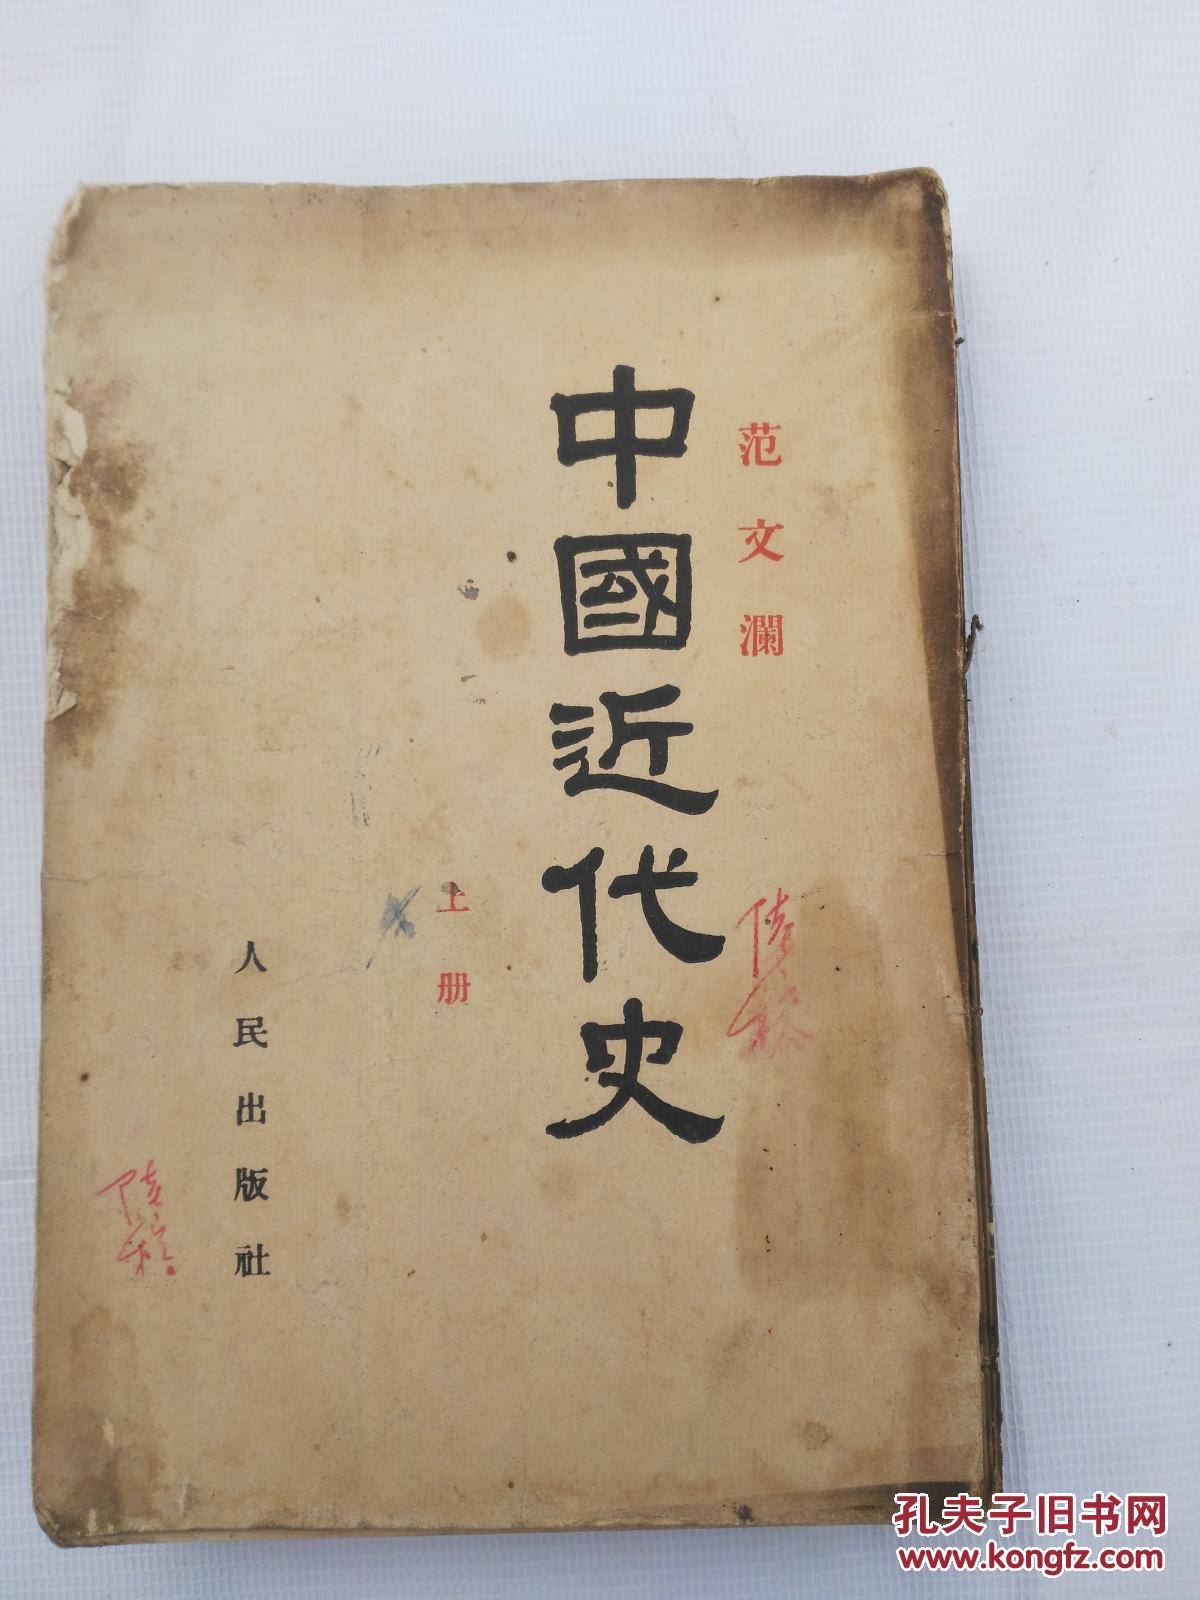 范文瀾
中國近代史
上册
人民出版社
孔夫子旧书网
www.kongfz.com